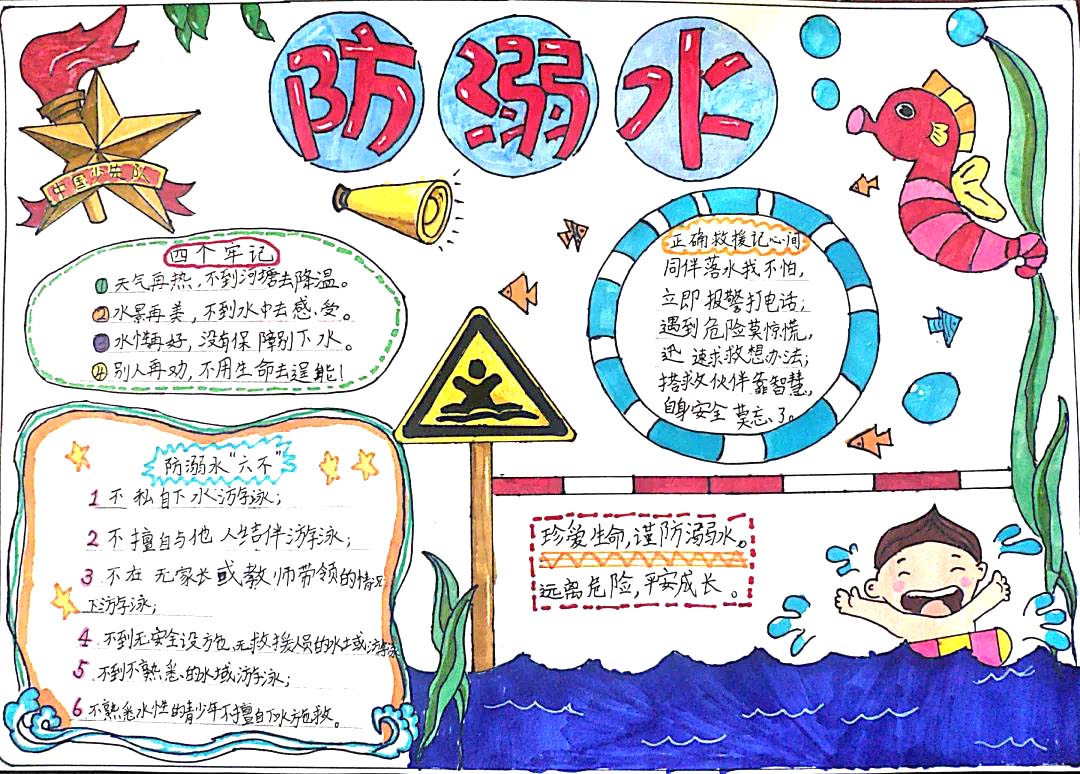 防溺水
中国少先队
四个牢记
1 天气再热，不到河塘去降温。
2 水景再美，不到水中去感受。
水情再好，没有保障别下水。
4 别人再劝，不用生命去逞能！
正确救援记心间
同伴落水我不怕，
立即报警打电话；
遇到危险莫惊慌，
迅速求救想办法；
搭救伙伴靠智慧，
自身安全莫忘了。
防溺水“六不”
1 不私自下水游泳；
2 不擅自与他人结伴游泳；
3 不在无家长或教师带领的情况
下游泳；
4 不到无安全设施、无救援人员的水域游泳
5 不到不熟悉的水域游泳；
6 不熟悉水性的青少年不擅自下水施救。
珍爱生命，谨防溺水。
远离危险，平安成长。